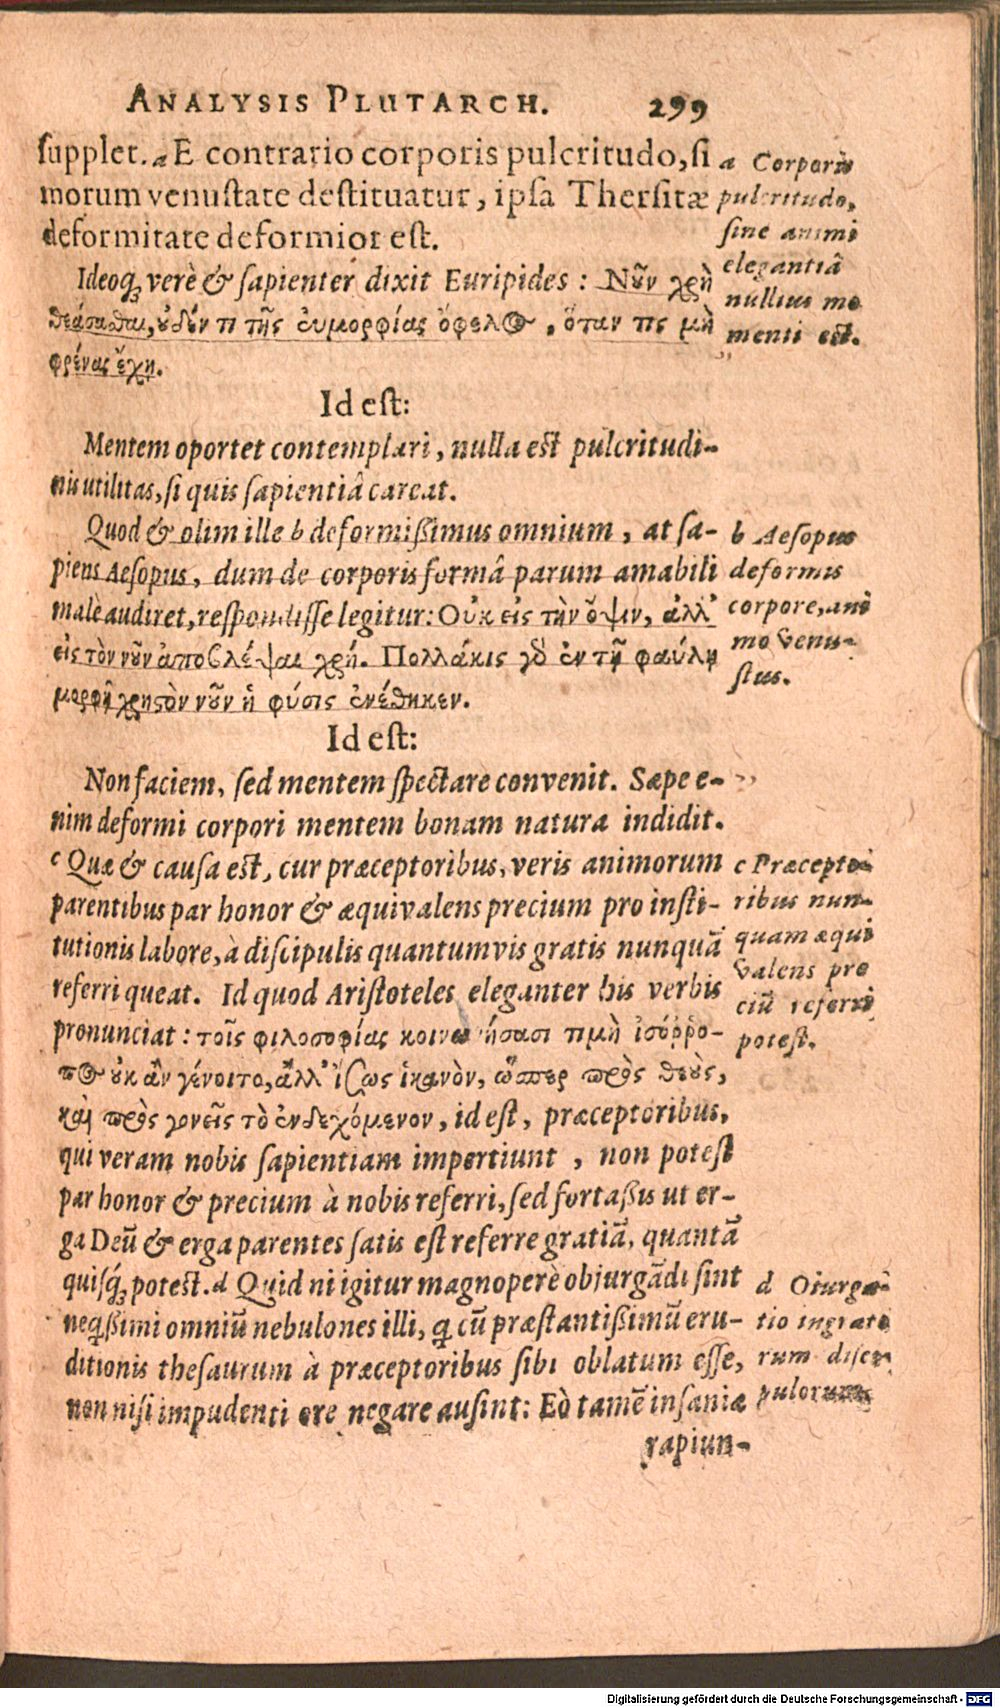 ANALYSIS PLUTARCH. 299
supplet. a E contrario corporis pulcritudo, si
morum venustate destituatur, ipsa Thersitæ
deformitate deformior est.
a Corporis
pulcritudo,
sine animi
elegantiâ
nullius mo
menti est.
Ideoq; verè & sapienter dixit Euripides: Νοῦν χρὴ
θεάσασθαι, οὐδέν τι τῆς εὐμορφίας ὄφελος, ὅταν τις μὴ
φρένας ἔχῃ.
Id est:
Mentem oportet contemplari, nulla est pulcritudi-
nis utilitas, si quis sapientiâ careat.
Quod & olim ille b deformißimus omnium, at sa-
piens Aesopus, dum de corporis formâ parum amabili
malè audiret, respondisse legitur: Οὐκ εἰς τὴν ὄψιν, ἀλλ'
εἰς τὸν νοῦν ἀποβλέψαι χρή. Πολλάκις γὸ ἐν τῇ φαύλῃ
μορφῇ χρηστὸν νοῦν ἡ φύσις ἐνέθηκεν.
b Aesopus
deformis
corpore, ani
mo venu-
stus.
Id est:
Non faciem, sed mentem spectare convenit. Sæpe e-
nim deformi corpori mentem bonam natura indidit.
c Quæ & causa est, cur præceptoribus, veris animorum
parentibus par honor & æquivalens precium pro insti-
tutionis labore, à discipulis quantumvis gratis nunquã
referri queat. Id quod Aristoteles eleganter his verbis
pronunciat: τοῖς φιλοσοφίας κοινωνήσασι τιμὴ ἰσόῤῥο-
πος οὐκ ἂν γένοιτο, ἀλλ' ἴσως ἱκανὸν, ὥσπερ πρὸς θεοὺς,
καὶ πρὸς γονεῖς τὸ ἐνδεχόμενον, id est, præceptoribus,
qui veram nobis sapientiam impertiunt, non potest
par honor & precium à nobis referri, sed fortaßis ut er-
ga Deũ & erga parentes satis est referre gratiã, quantã
quisq; potest. d Quid ni igitur magnoperè objurgãdi sint
neqßimi omniũ nebulones illi, q cũ præstantißimũ eru-
ditionis thesaurum à præceptoribus sibi oblatum esse,
non nisi impudenti ore negare ausint: Eò tamẽ insaniæ
c Præcepto-
ribus nun-
quam æqui
valens pre
ciũ referri
potest.
d Oiurga-
tio ingrato
rum disci-
pulorum.
rapiun-
Digitalisierung gefördert durch die Deutsche Forschungsgemeinschaft - DFG